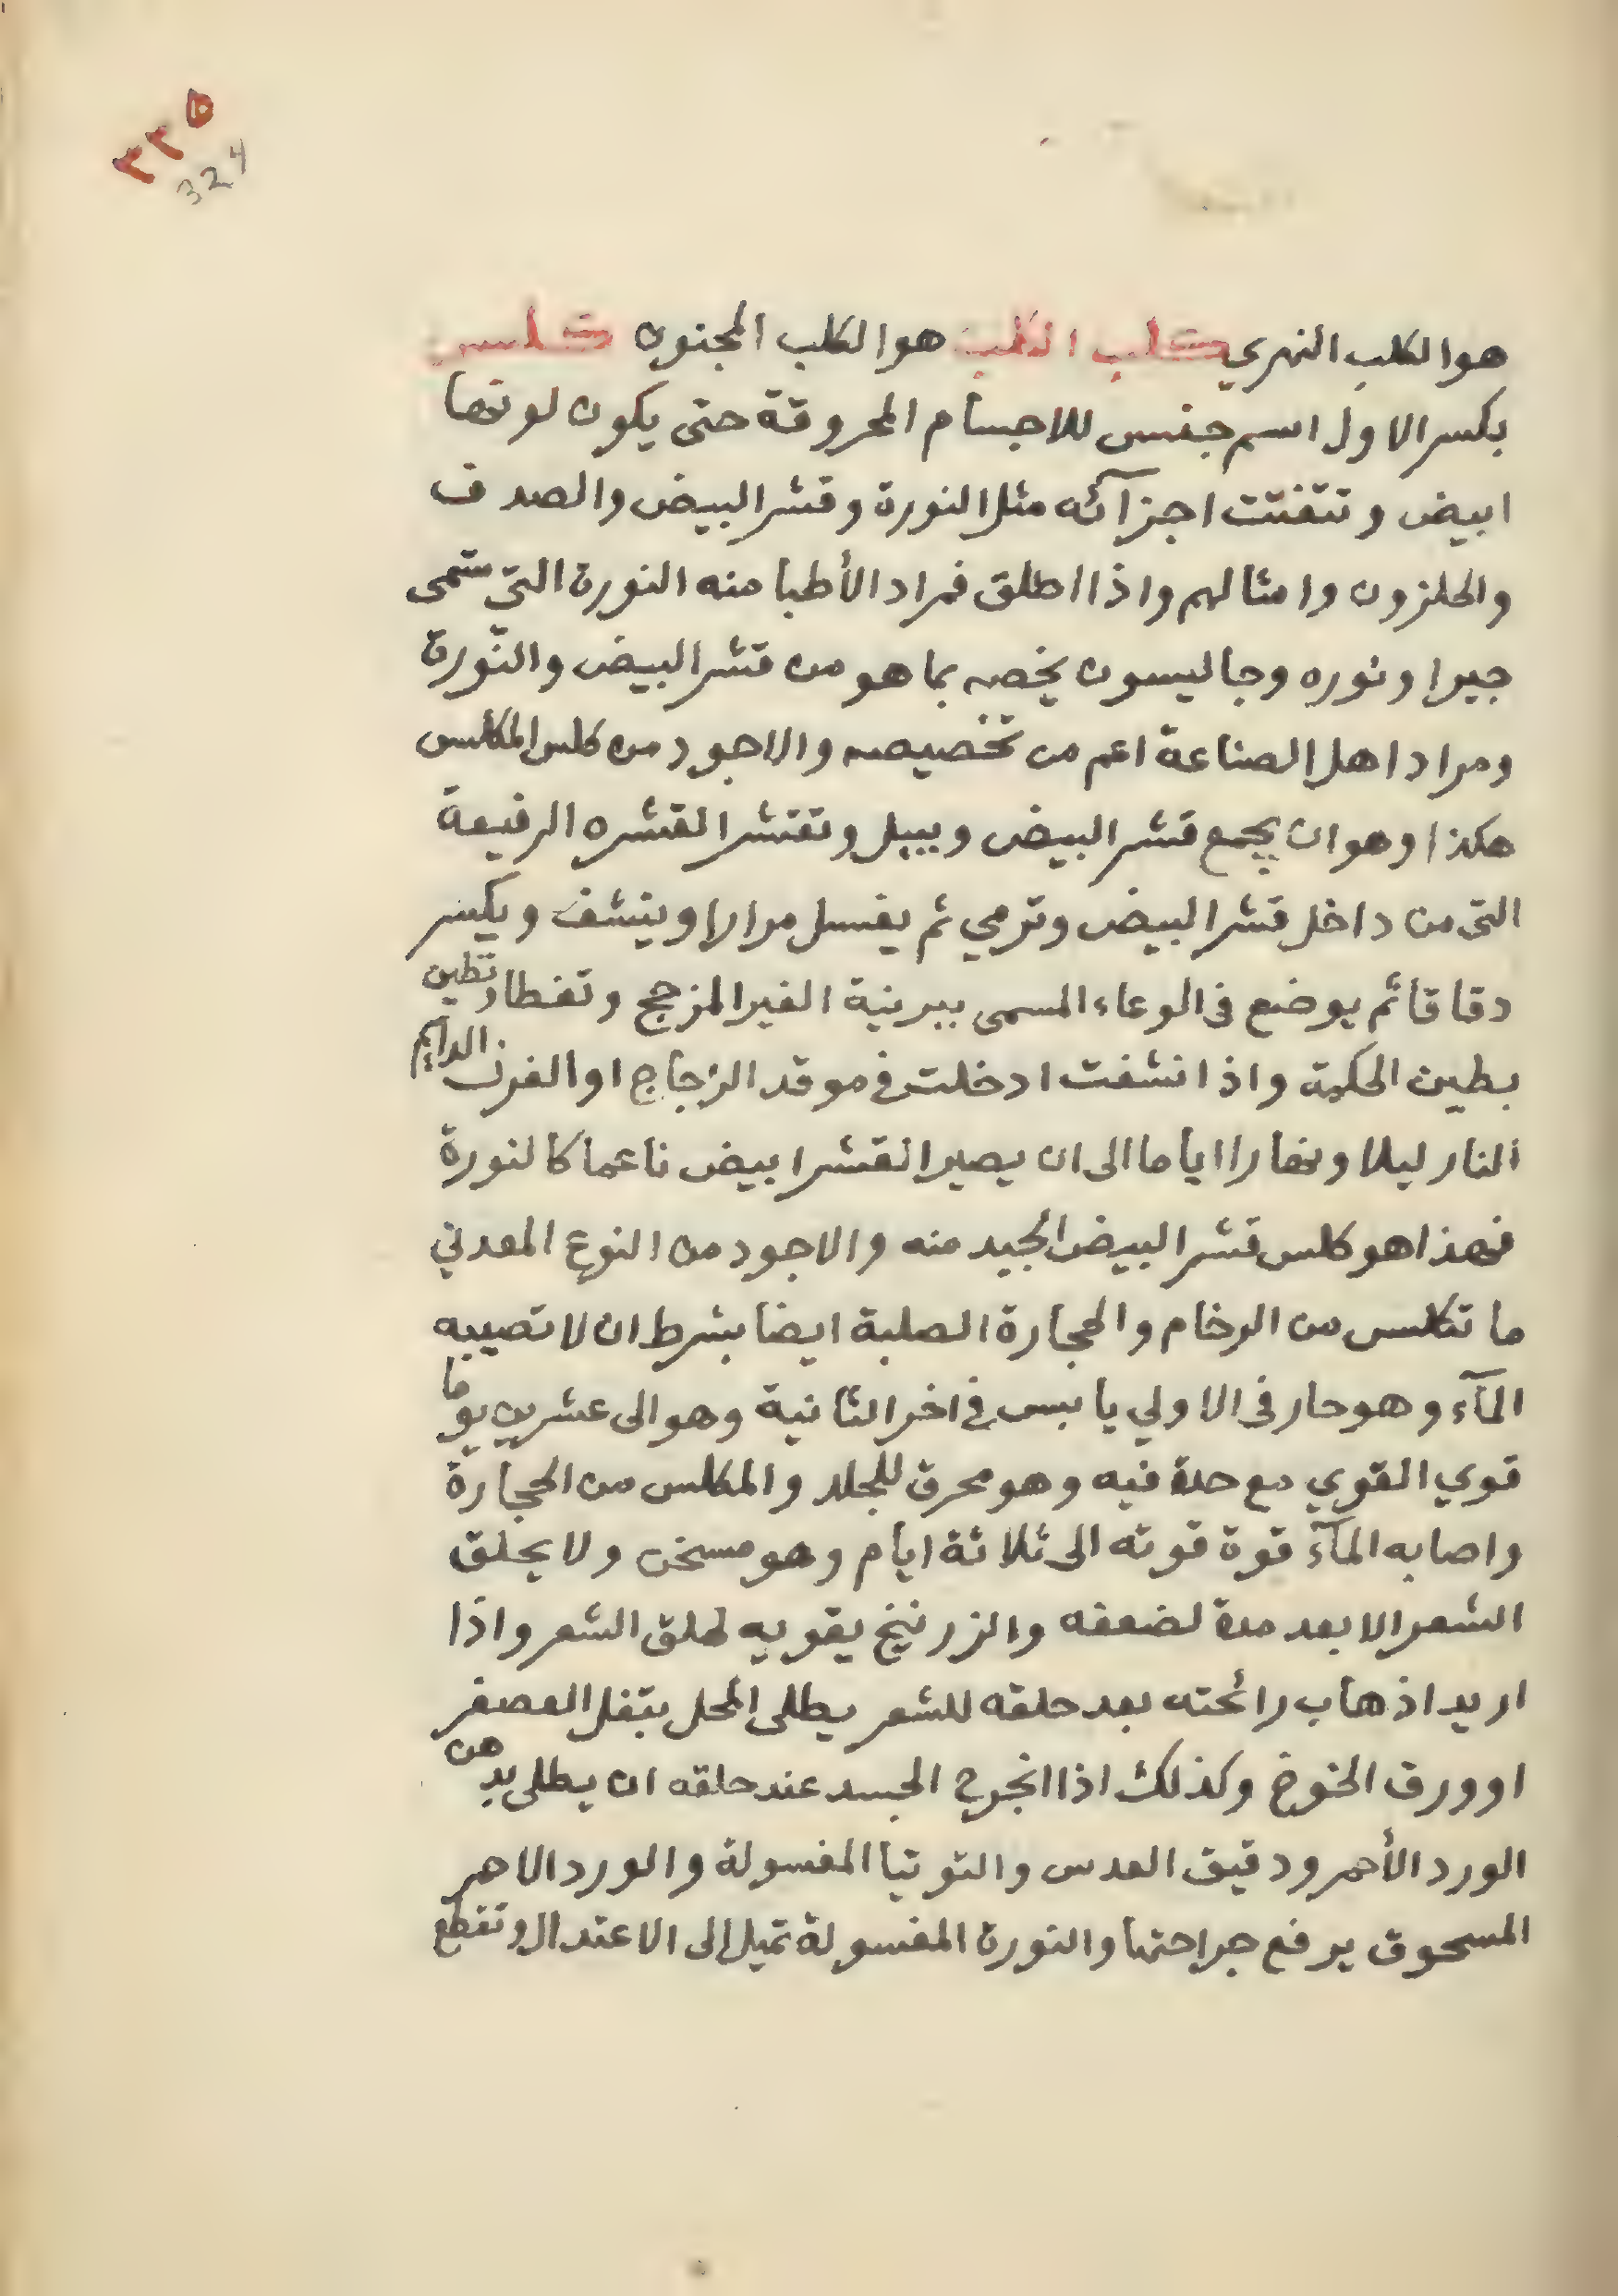 ٣٢٥
324
هو الكلب النهري كلب الكلب هو الكلب المجنون كلس
بكسر الاول اسم جنس للاجسام المحروقة حتى يكون لونها
ابيض وتتفتت اجزآئه مثل النورة وقشر البيض والصدف
والحلزون وامثالهم واذا اطلق فمراد الأطبا منه النورة التي ستمى
جيرا ونوره وجاليسون يخصه بما هو من قشر البيض والنّورة
ومراد اهل الصناعة اعم من تخصيصه والاجود من كلس المكلس
هكذا وهو ان يجمع قشر البيض ويبل وتقشر القشره الرفيعة
التى من داخل قشر البيض وترمي ثم يغسل مرارا وينشف ويكسر
دقاقا ثم يوضع فى الوعاء المسمى ببرنية الغير المزجج وتغطا وتطين
بطين الحكمة واذا نشفت ادخلت في موقد الزجاج او الفرن الدآيم
النار ليلا ونهارا اياما الى ان يصير القشر ابيض ناعما كالنورة
فهذا هو كلس قشر البيض الجيد منه والاجود من النوع المعدني
ما تكلس من الرخام والحجارة الصلبة ايضا بشرط ان لا تصيبه
المآء وهو حار فى الاولي يابس في اخر الثانية وهو الى عشرين يوما
قوي القوي مع حدة فيه وهو محرق للجلد والمكلس من الحجارة
واصابه المآء قوة قوته الى ثلاثة ايام وهو مسخن ولا يحلق
الشعر الا بعد مدة لضعفه والزرنيخ يقويه لحلق الشعر واذا
اريد اذهاب رائحته بعد حلقه للشعر يطلى المحل بتفل العصفر
او ورق الخوخ وكذلك اذا انجرح الجسد عند حلقه ان يطلى بدهن
الورد الأحمر ودقيق العدس والتوتيا المغسولة والورد الاحمر
المسحوق يرفع جراحتها والنورة المغسولة تميل الى الاعتدال وتقطع